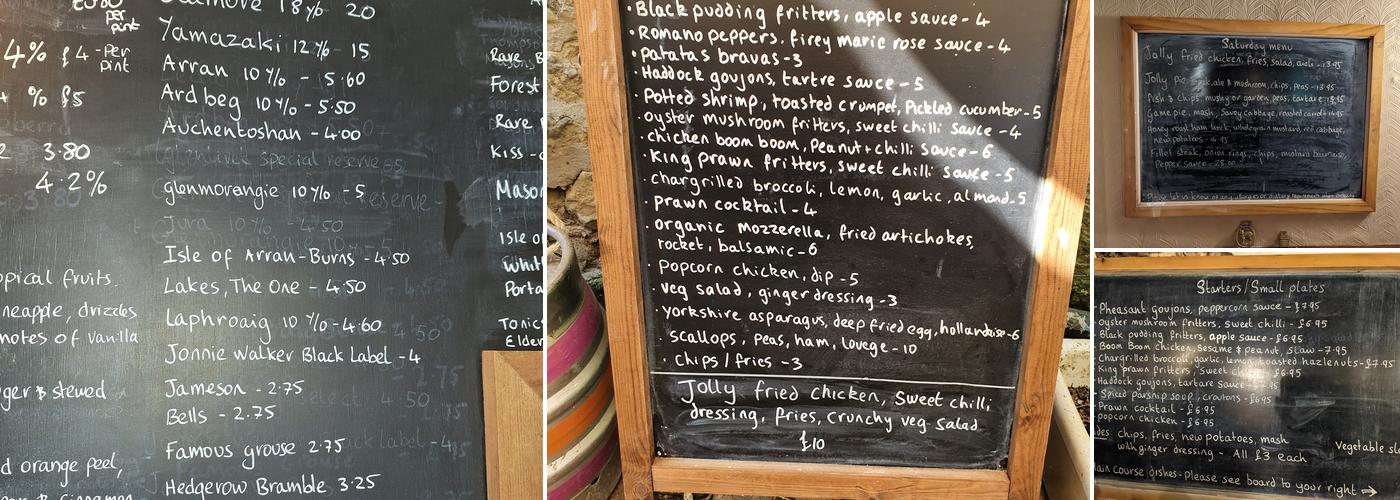 per
pint
4% £4 -per
pint
% £5
3.80
4.2%
opical fruits.
neapple, drizzles
notes of vanilla
ger & stewed
d orange peel,
18% 20
Yamazaki 12% - 15
Arran 10% - 5.60
Ardbeg 10% - 5.50
Auchentoshan - 4.00
glenmorangie 10% - 5
Jura 10% - 4.50
Isle of Arran-Burns - 4.50
Lakes, The One - 4.50
Laphroaig 10% - 4.60
Jonnie Walker Black Label - 4
Jameson - 2.75
Bells - 2.75
Famous grouse 2.75
Hedgerow Bramble 3.25
Rare B
Forest
Rare
Kiss -
Mason
Isle o
Whit
Porta
Tonic
Elder
• Black pudding fritters, apple sauce - 4
• Romano peppers, firey marie rose sauce - 4
• patatas bravas - 3
• Haddock goujons, tartre sauce - 5
• Potted shrimp, toasted crumpet, Pickled cucumber - 5
• oyster mushroom fritters, sweet chilli sauce - 4
• chicken boom boom, Peanut + chilli sauce - 6
• King prawn fritters, sweet chilli sauce - 5
• chargrilled broccoli, lemon, garlic, almond - 5
• prawn cocktail - 4
• organic mozzerella, fried artichokes,
rocket, balsamic - 6
• popcorn chicken, dip - 5
• veg salad, ginger dressing - 3
• yorkshire asparagus, deep fried egg, hollandaise - 6
• scallops, peas, ham, lovege - 10
• chips / fries - 3
Jolly fried chicken, sweet chilli
dressing, fries, crunchy veg salad
£10
Saturday menu
Jolly fried chicken, fries, salad, aioli - 13.95
Jolly pie - ale & mushroom, chips, peas - 13.95
Fish & chips, mushy or garden peas, tartare
Game pie, mash, Savoy cabbage, roasted carrot
Honey roast ham hock, wholegrain mustard, red cabbage,
new potatoes
Fillet steak, onion rings, chips, mustard
Pepper sauce
Please let us know of any allergies or dietary
Starters/Small plates
Pheasant goujons, peppercorn sauce - £7.95
oyster mushroom fritters, sweet chilli - £6.95
Black pudding fritters, apple sauce - £6.95
Boom Boom chicken, sesame & peanut, slaw - 7.95
Chargrilled broccoli, garlic, lemon, toasted hazelnuts - £7.95
King prawn fritters, sweet £6.95
Haddock goujons, tartare sauce
Spiced parsnip soup, croutons - £6.95
Prawn cocktail - £6.95
popcorn chicken - £6.95
chips, fries, new potatoes, mash
with ginger dressing - All £3 each
Vegetable
ain course dishes - please see board to your right →